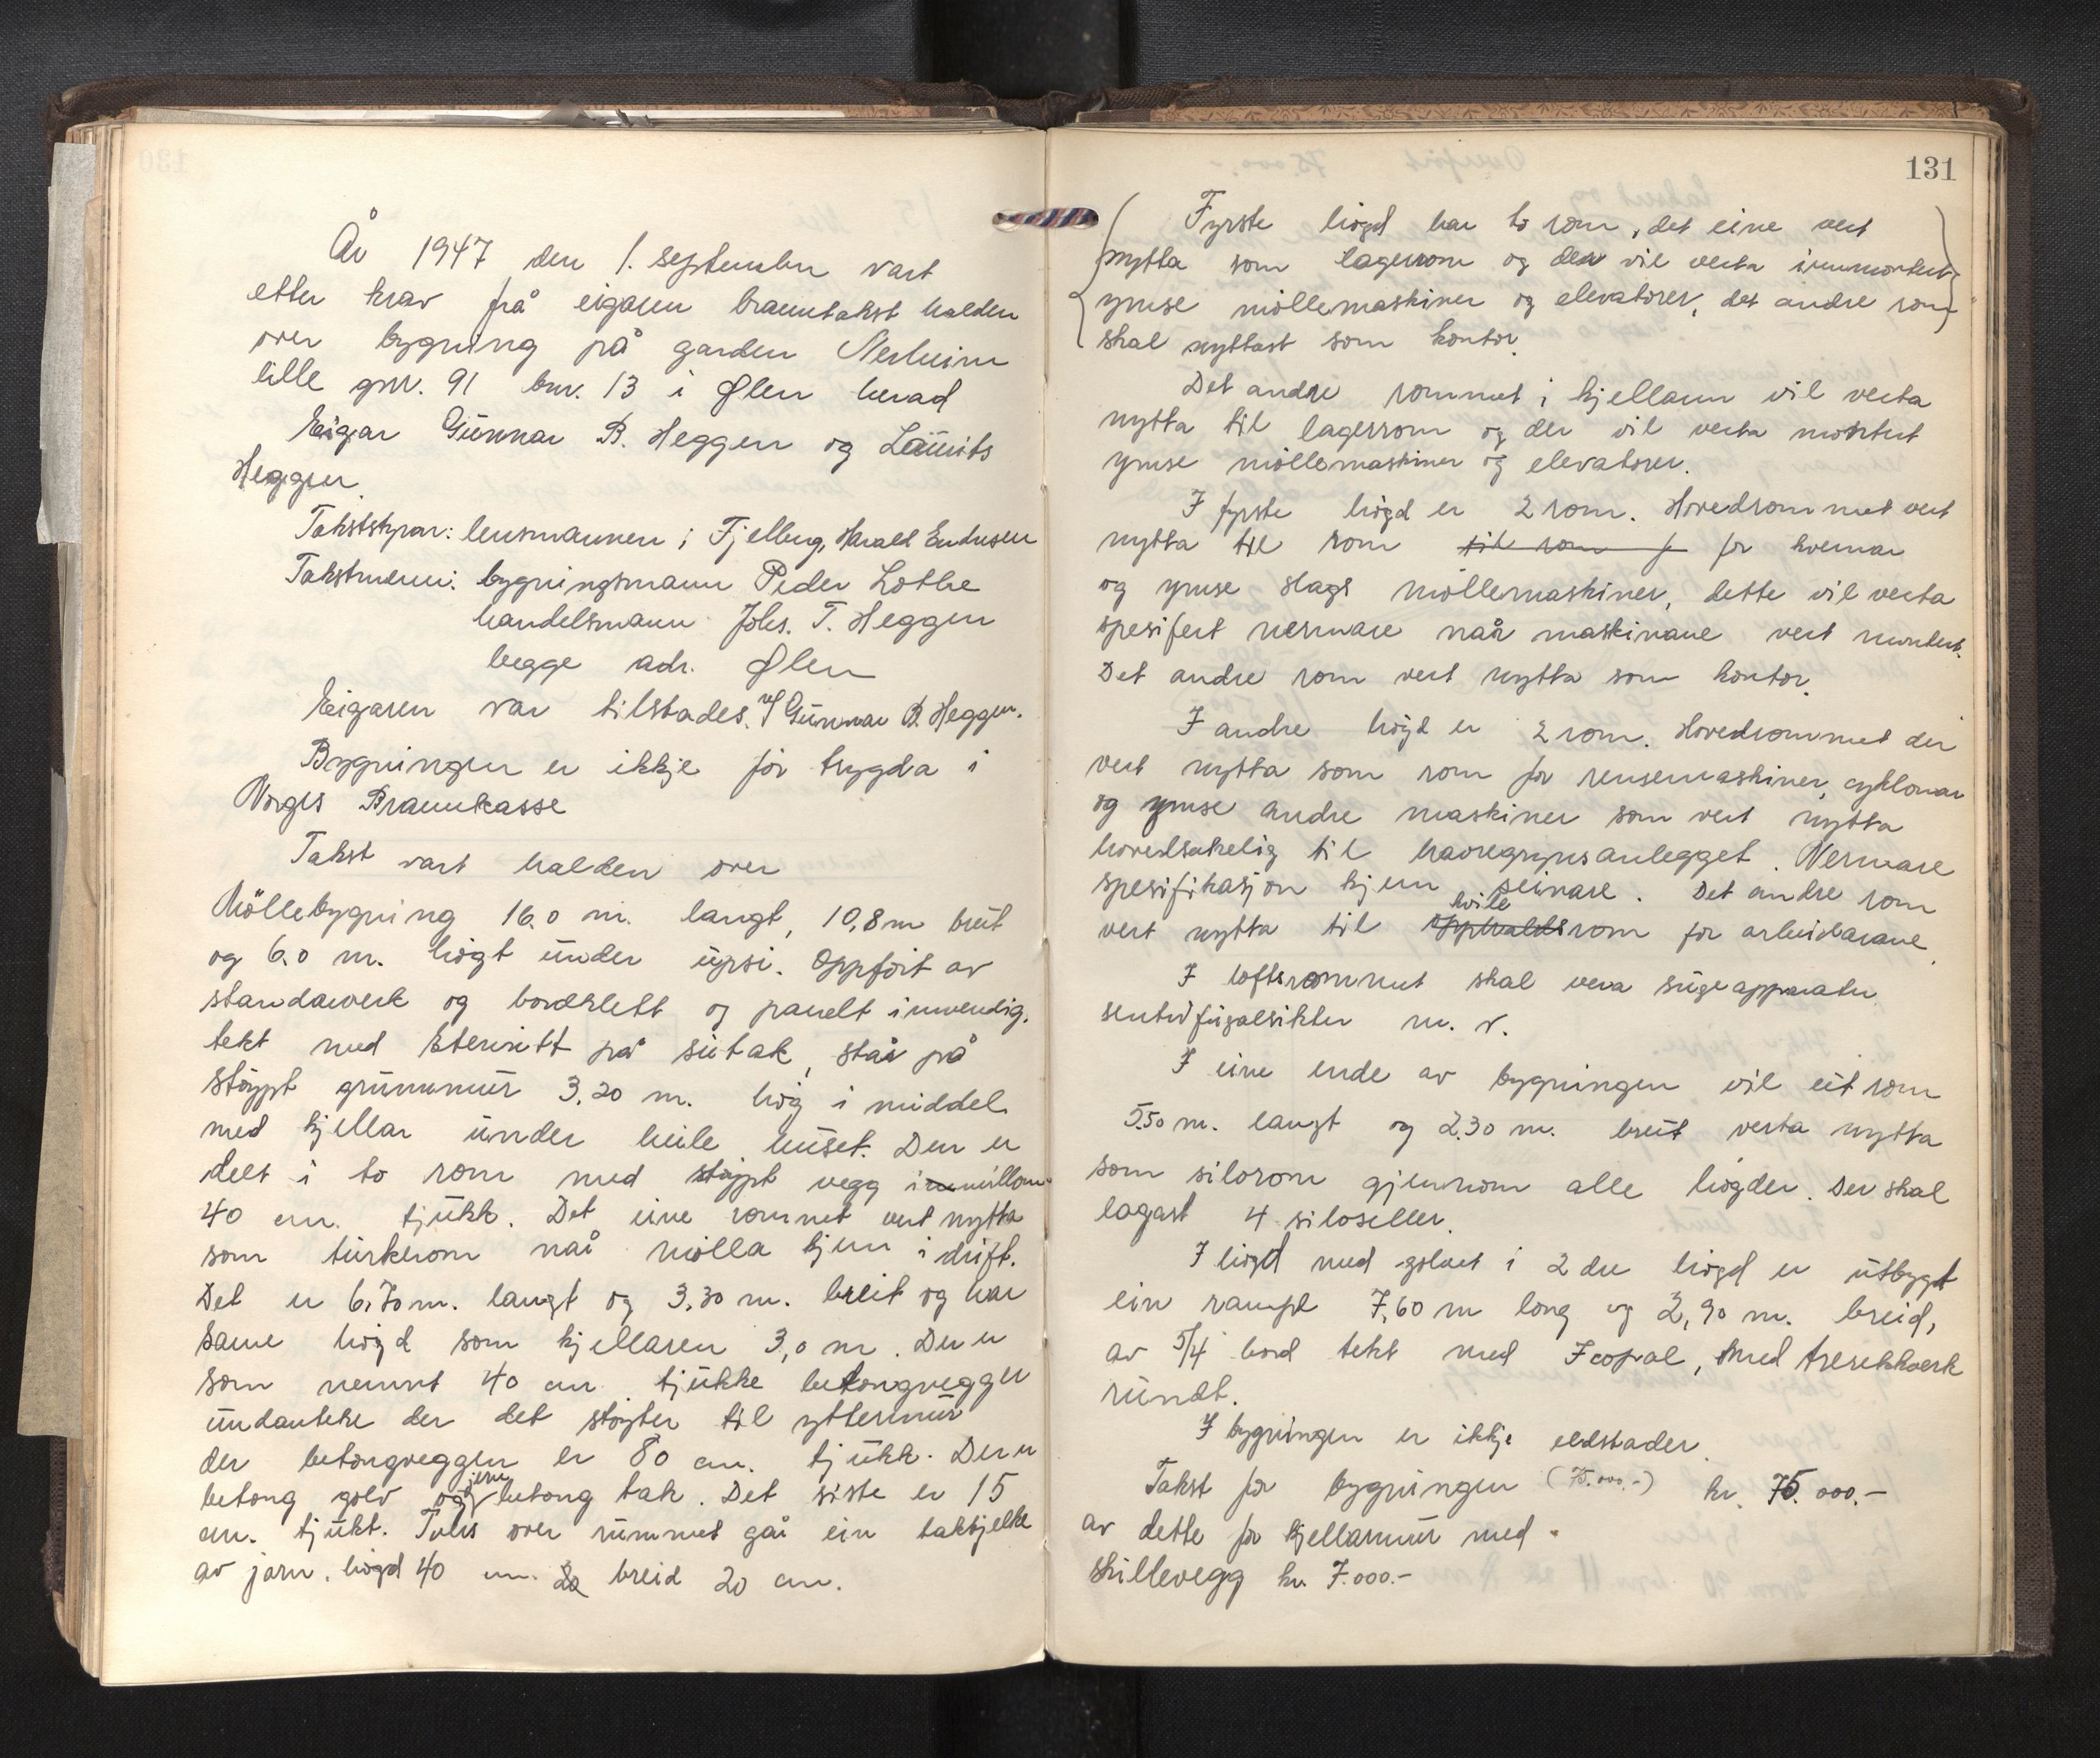 År 1947 den 1. september vart
etter krav frå eigaren branntakst halden
over bygning på garden Nerheim
lille gnr. 91 bnr. 13 i Ølen herad
Eigar Gunnar B. Heggen og Laurits
Heggen.
Takststyrar: lensmannen i Fjelberg, Harald Endresen
Takstmenn: bygningsmann Peder Lothe
handelsmann Johs. T. Heggen
begge adr. Ølen
Eigaren var tilstades. v/ Gunnar B. Heggen.
Bygningen er ikkje før trygda i
Norges Brannkasse
Takst vart halden over
Møllebygning 16.0 m. langt, 10,8 m breit
og 6.0 m. høgt under upsi. Oppført av
standarverk og bordklett og panelt innvendig.
tekt med Eternitt på sutak, står på
støypt grunnmur 3.20 m. høg i middel
med kjellar under heile huset. Den er
delt i to rom med støypt vegg imillom
40 cm. tjukk. Det eine rommet vert nytta
som turkerom når mølla kjem i drift.
Det er 6,70 m. langt og 3,30 m. breit og har
same høgd som kjellaren 3,0 m. Der er
som nemnt 40 cm tjukke betongvegger
undanteke der det støyter til yttermur
der betongveggen er 80 cm. tjukk. Der er
betong golv og jern betong tak. Det siste er 15
cm. tjukt. Tvers over rummet går ein takbjelke
av jarn. høgd 40 cm. breid 20 cm.
131
Fyrste høgd har to rom, det eine vert
nytta som lagerrom og der vil verta innmontert
ymse møllemaskiner og elevatorer, det andre rom
skal nyttast som kontor.
Det andre rommet i kjellaren vil verta
nytta til lagerrom og der vil verta montert
ymse møllemaskiner og elevatorer.
I fyrste høgd er 2 rom. Hovedrommet vert
nytta til rom til rom f for kvernar
og ymse slags møllemaskiner, dette vil verta
spesifert nermare når maskinane vert montert.
Det andre rom vert nytta som kontor.
I andre høgd er 2 rom. Hovedrommet der
vert nytta som rom for rensemaskiner, cyklonar
og ymse andre maskiner som vert nytta
hovedsakelig til havregrynsanlegget. Nermare
spesifikasjon kjem seinare. Det andre rom
vert nytta til oppholds hvile rom for arbeidarane.
I loftsrommet skal vera sugeapparater
sentrifugalsikter m. v.
I eine ende av bygningen vil eit rom
5.50 m. langt og 2.30 m. breit verta nytta
som silorom gjennom alle høgder. Der skal
lagast 4 siloseller.
I høgd med golvet i 2dre høgd er utbygt
ein rampe 7,60 m long og 2,90 m. breid,
av 5/4 bord tekt med Icopal, med tresrekkverk
rundt.
I bygningen er ikkje eldstader.
Takst for bygningen (75.000.-) kr. 75.000.-
av dette for kjellarmur med
skillevegg kr. 7.000.-